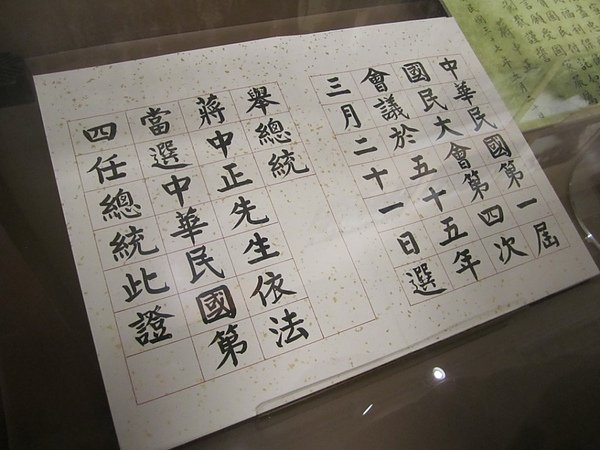 中華民國第一屆
國民大會第四次
會議於五十五年
三月二十一日選
舉總統
蔣中正先生依法
當選中華民國第
四任總統此證